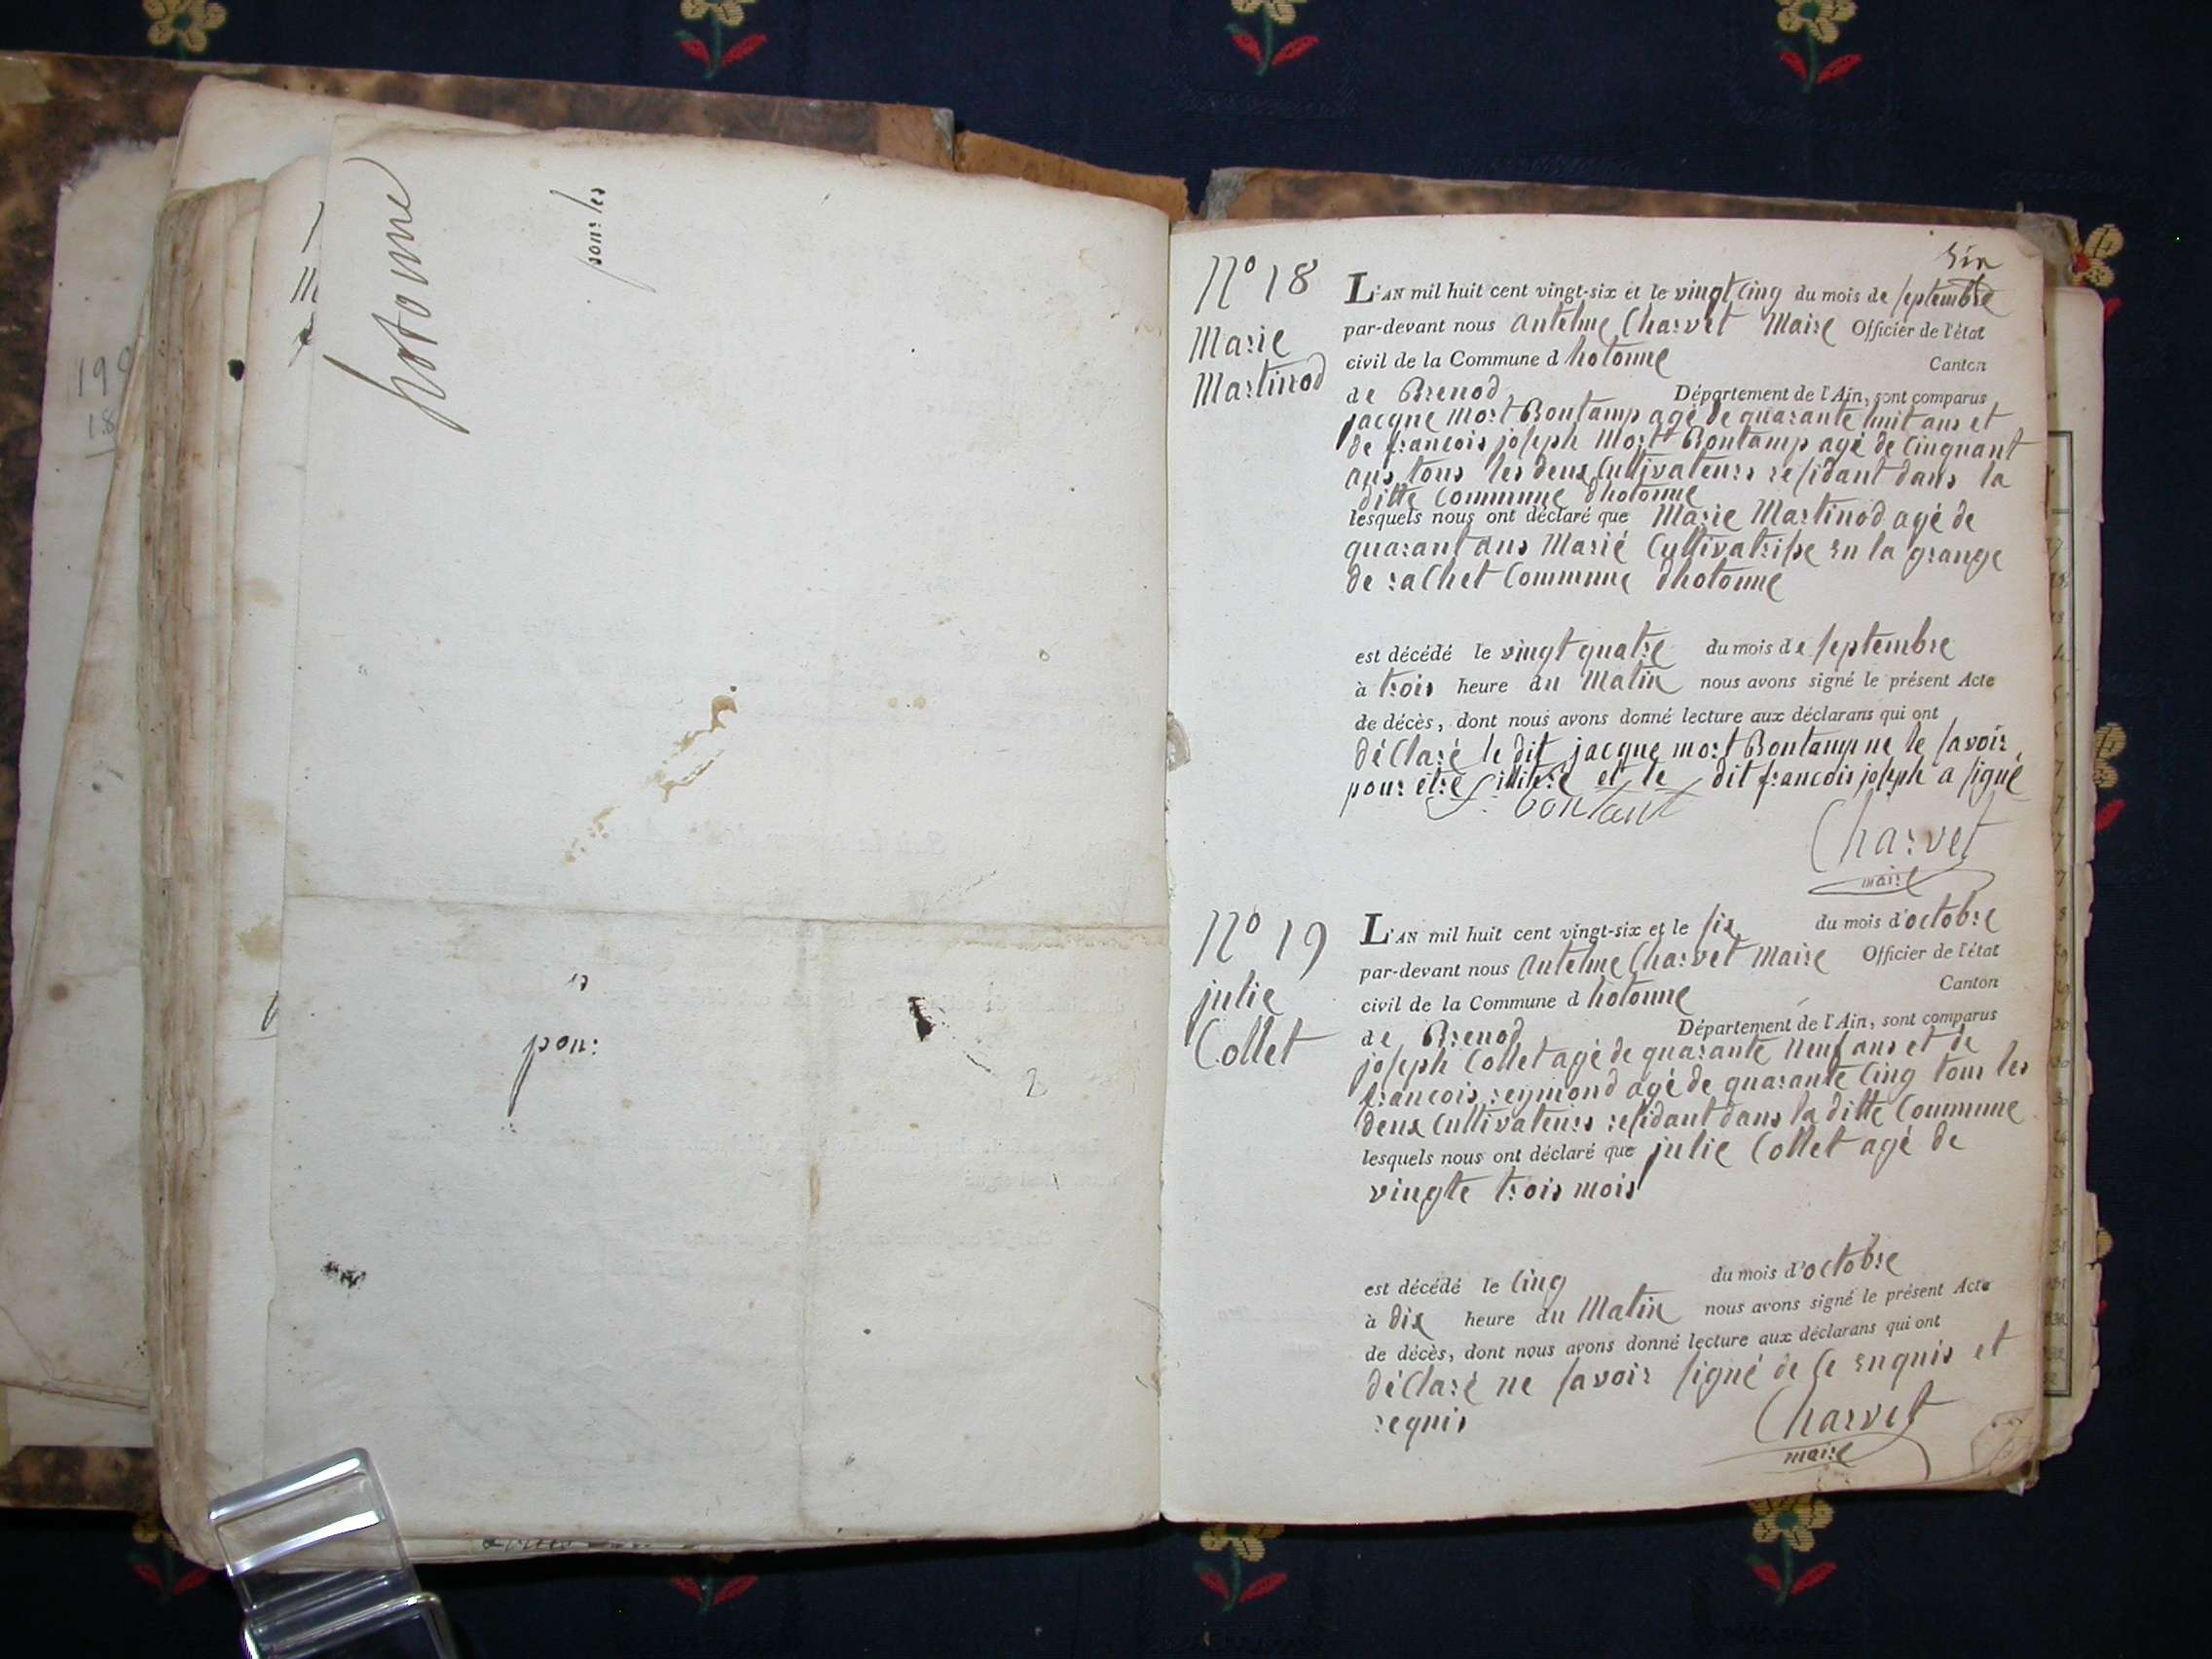 hotonne
pour les
pour
2
six
N° 18
Marie
Martinod
L'AN mil huit cent vingt-six et le vingt cinq du mois de septembre
par-devant nous antelme Charvet Maire Officier de l'état
civil de la Commune d hotonne Canton
de Brenod Département de l'Ain, sont comparus
jacque mort Bontamp agé de quarante huit ans et
de francois joseph Mort Bontamp agé de cinquant
ans tous les deux Cultivateurs residant dans la
ditte Commune dhotonne
lesquels nous ont déclaré que Marie Martinod agé de
quarant ans Marié Cultivatrisse en la grange
de rachet Commune dhotonne
est décédé le vingt quatre du mois de septembre
à trois heure du Matin nous avons signé le présent Acte
de décès, dont nous avons donné lecture aux déclarans qui ont
déclaré le dit jacque mort Bontamp ne le savoir
pour etre illitéré et le dit francois joseph a signé
f. bontant
Charvet
maire
N° 19
julie
Collet
L'AN mil huit cent vingt-six et le six du mois d'octobre
par-devant nous antelme Charvet Maire Officier de l'état
civil de la Commune d hotonne Canton
de Brenod Département de l'Ain, sont comparus
joseph Collet agé de quarante neuf ans et de
francois reymond agé de quarante cinq tous les
deux Cultivateurs residant dans la ditte Commune
lesquels nous ont déclaré que julie Collet agé de
vingte trois mois
est décédé le cinq du mois d'octobre
à dix heure du Matin nous avons signé le présent Acte
de décès, dont nous avons donné lecture aux déclarans qui ont
déclaré ne savoir signé de ce enquis et
requis
Charvet
maire